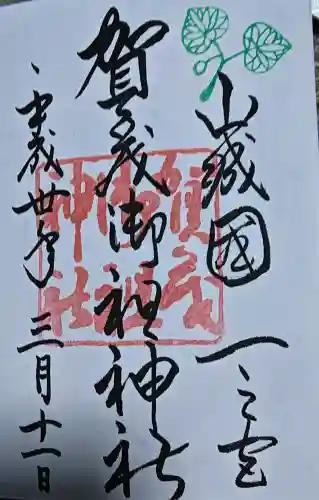 山城國一之宮
賀茂御祖神社
平成卅年三月十一日
賀茂
御祖
神社